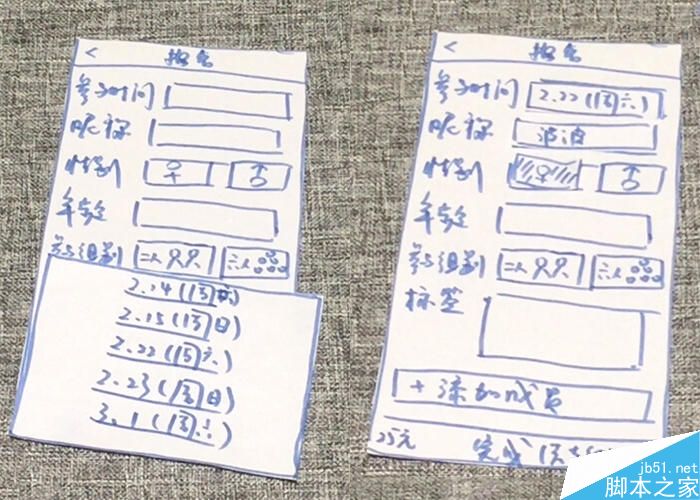 < 报名
参与时间
昵称
性别 ♀ ♂
年龄
参与组别 二人 六人
2.14(周六)
2.15(周日)
2.22(周六)
2.23(周日)
3.1(周六)
< 报名
参与时间 2.22(周六)
昵称 波波
性别 ♀ ♂
年龄
参与组别 二人 六人
标签
+添加成员
25元 完成
jb51.net
脚本之家